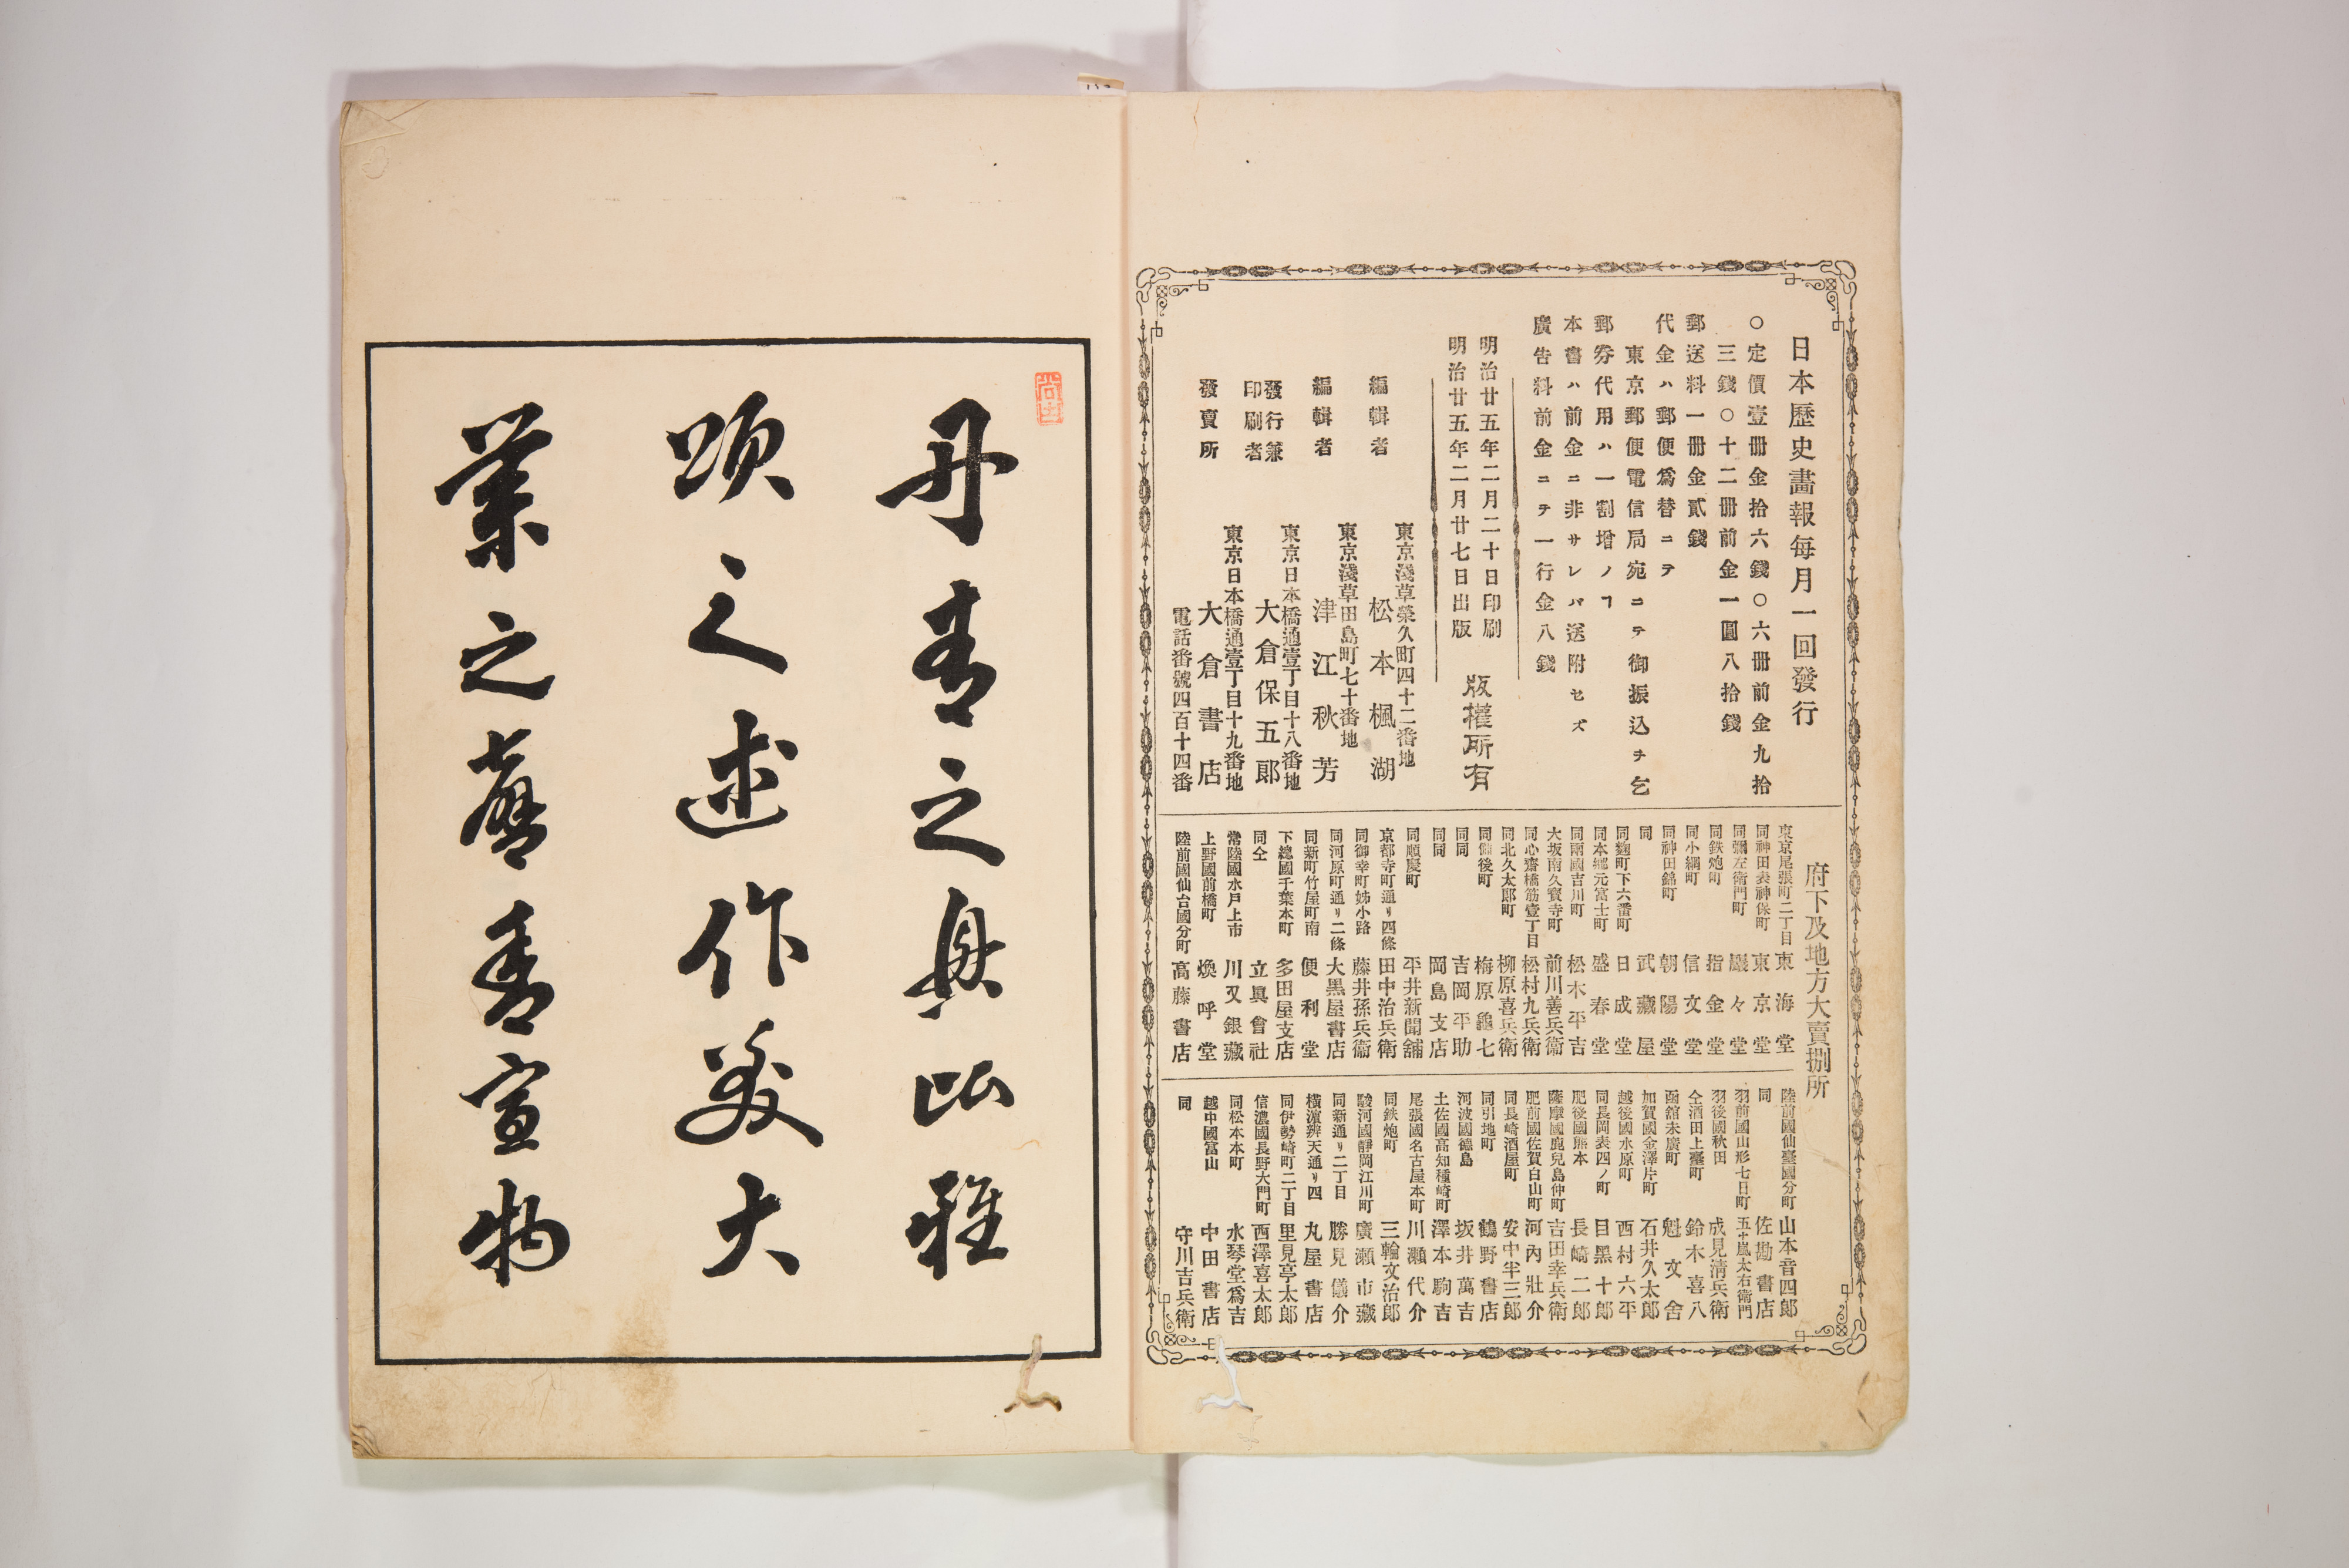 日本歷史畫報每月一回發行
○定價壹冊金拾六錢○六冊前金九拾
三錢○十二冊前金一圓八拾錢
郵送料一冊金貳錢
代金ハ郵便爲替ニテ
東京郵便電信局宛ニテ御振込ヲ乞
郵劵代用ハ一割增ノヿ
本書ハ前金ニ非サレバ送附セズ
廣告料前金ニテ一行金八錢
明治廿五年二月二十日印刷
明治廿五年二月廿七日出版
版權所有
東京淺草榮久町四十二番地
編輯者 松本楓湖
東京淺草田島町七十番地
編輯者 津江秋芳
東京日本橋通壹丁目十八番地
發行兼印刷者 大倉保五郎
東京日本橋通壹丁目十九番地
發賣所 大倉書店
電話番號四百十四番
府下及地方大賣捌所
東京尾張町二丁目 東海堂
同神田表神保町 東京堂
同彌左衛門町 巖々堂
同鉄炮町 指金堂
同小網町 信文堂
同神田錦町 朝陽堂
同 武藏屋
同麴町下六番町 日成堂
同本鄕元富士町 盛春堂
同兩國吉川町 松木平吉
大坂南久寶寺町 前川善兵衛
同心齋橋筋壹丁目 松村九兵衛
同北久太郎町 柳原喜兵衛
同備後町 梅原龜七
同同 吉岡平助
同同 岡島支店
同順慶町 平井新聞舖
京都寺町通リ四條 田中治兵衛
同御幸町姊小路 藤井孫兵衞
同河原町通リ二條 大黑屋書店
同新町竹屋町南 便利堂
下總國千葉本町 多田屋支店
同仝 立眞會社
常陸國水戸上市 川又銀藏
上野國前橋町 煥呼堂
陸前國仙台國分町 高藤書店
陸前國仙臺國分町 山本音四郎
同 佐勘書店
羽前國山形七日町 五十嵐太右衛門
羽後國秋田 成見淸兵衛
仝酒田上臺町 鈴木喜八
函舘末廣町 魁文舍
加賀國金澤片町 石井久太郎
越後國水原町 西村六平
同長岡表四ノ町 目黑十郎
肥後國熊本 長崎二郎
薩摩國鹿兒島仲町 吉田幸兵衛
肥前國佐賀白山町 河內壯介
同長崎酒屋町 安中半三郎
同引地町 鶴野書店
河波國德島 坂井萬吉
土佐國高知種崎町 澤本駒吉
尾張國名古屋本町 川瀨代介
同鉄炮町 三輪文治郎
駿河國靜岡江川町 廣瀨市藏
同新通リ二丁目 勝見儀介
橫濵辨天通リ四 丸屋書店
同伊勢崎町二丁目 里見亭太郎
信濃國長野大門町 西澤喜太郎
同松本本町 水琴堂爲吉
越中國富山 中田書店
同 守川吉兵衛
丹青之興比雅
頌之述作美大
業之馨香宣物